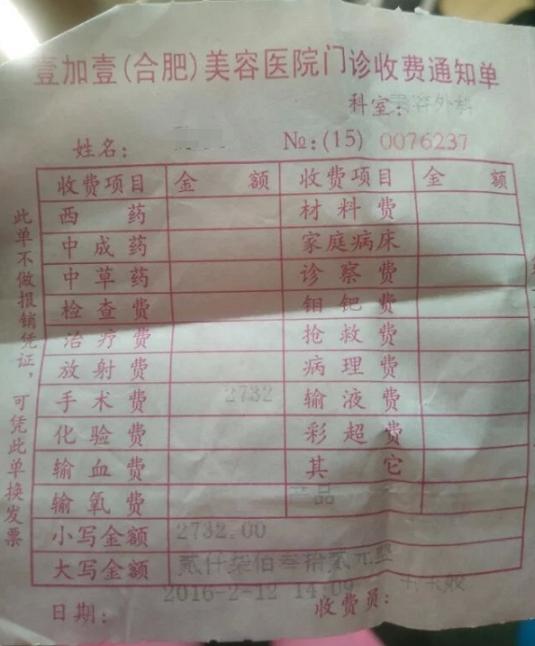 壹加壹(合肥)美容医院门诊收费通知单
科室:美容外科
姓名: №:(15) 0076237
收费项目 金额 收费项目 金额
西药 材料费
中成药 家庭病床
中草药 诊察费
检查费 钼钯费
治疗费 抢救费
放射费 病理费
手术费 2732 输液费
化验费 彩超费
输血费 其它
输氧费 品
小写金额 2732.00
大写金额 贰仟柒佰叁拾贰元整
日期: 2016-2-12 14:09 收费员:
此单不做报销凭证,可凭此单换发票